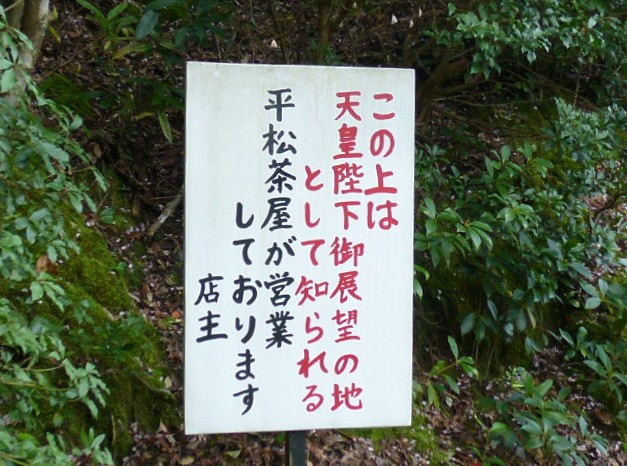 この上は
天皇陛下御展望の地
として知られる
平松茶屋が営業
しております
店主